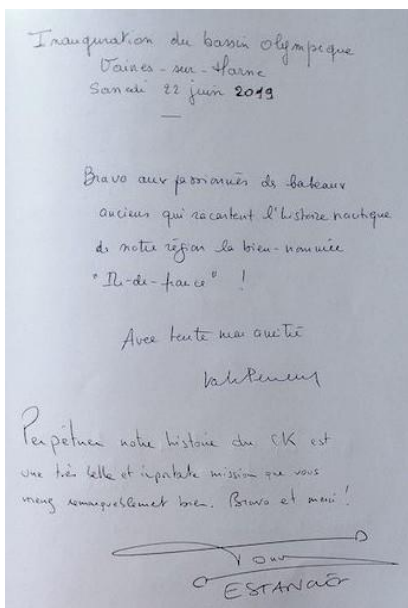 Inauguration du bassin olympique
Vaires-sur-Marne
Samedi 22 juin 2019
Bravo aux passionnés de bateaux
anciens qui racontent l'histoire nautique
de notre région la bien-nommée
"Ile-de-france" !
Avec toute mon amitié
Perpétuer notre histoire du CK est
une très belle et importante mission que vous
menez remarquablement bien. Bravo et merci !
Tony
ESTANGUET